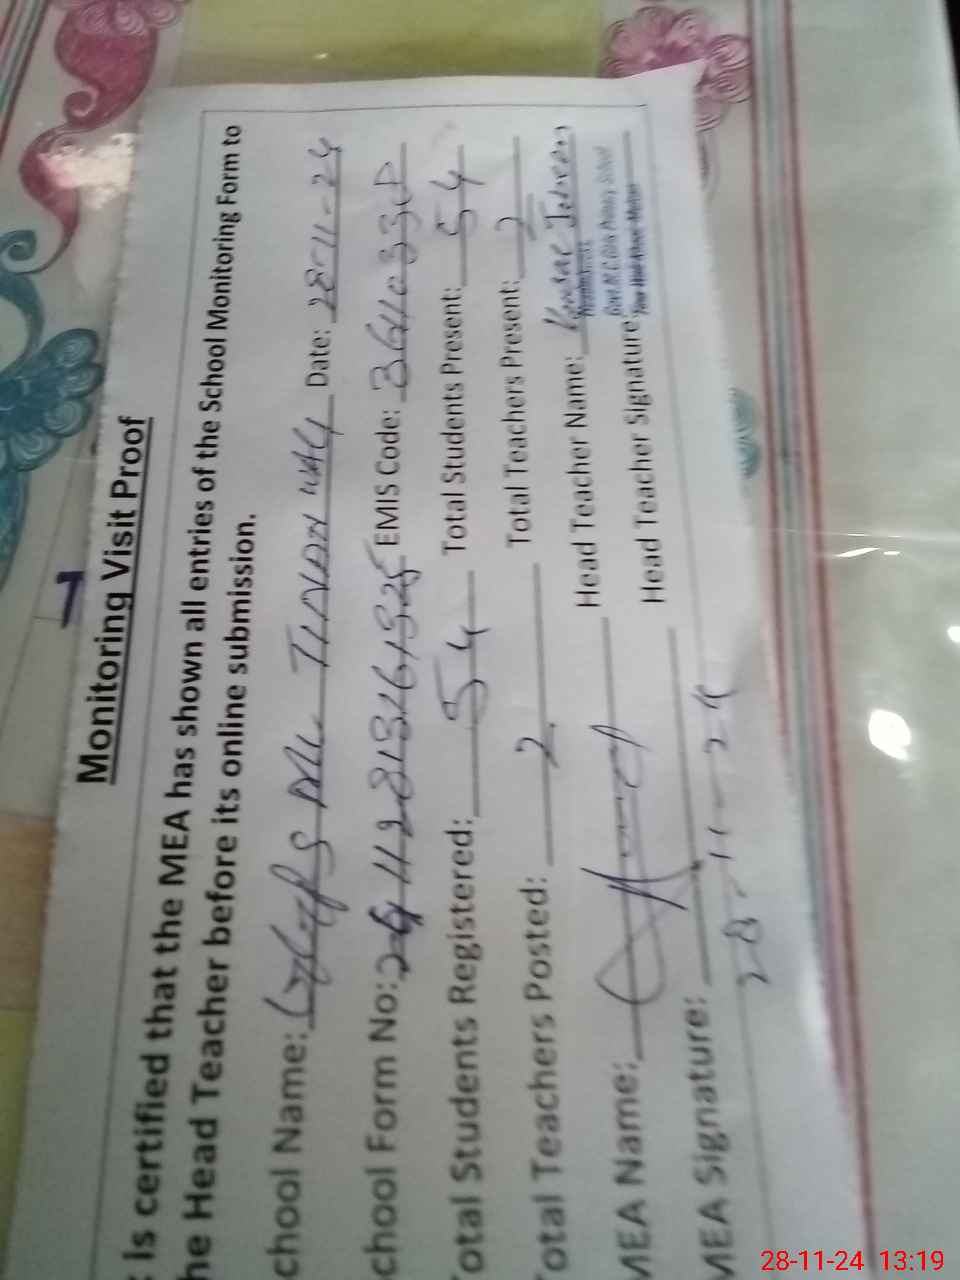 Monitoring Visit Proof
is certified that the MEA has shown all entries of the School Monitoring Form to
he Head Teacher before its online submission.
chool Name: Date: 28-11-24
chool Form No: EMIS Code:
Total Students Registered: 54 Total Students Present: 54
Total Teachers Posted: 2 Total Teachers Present: 2
MEA Name: Head Teacher Name:
MEA Signature: Head Teacher Signature
28-11-24
28-11-24 13:19